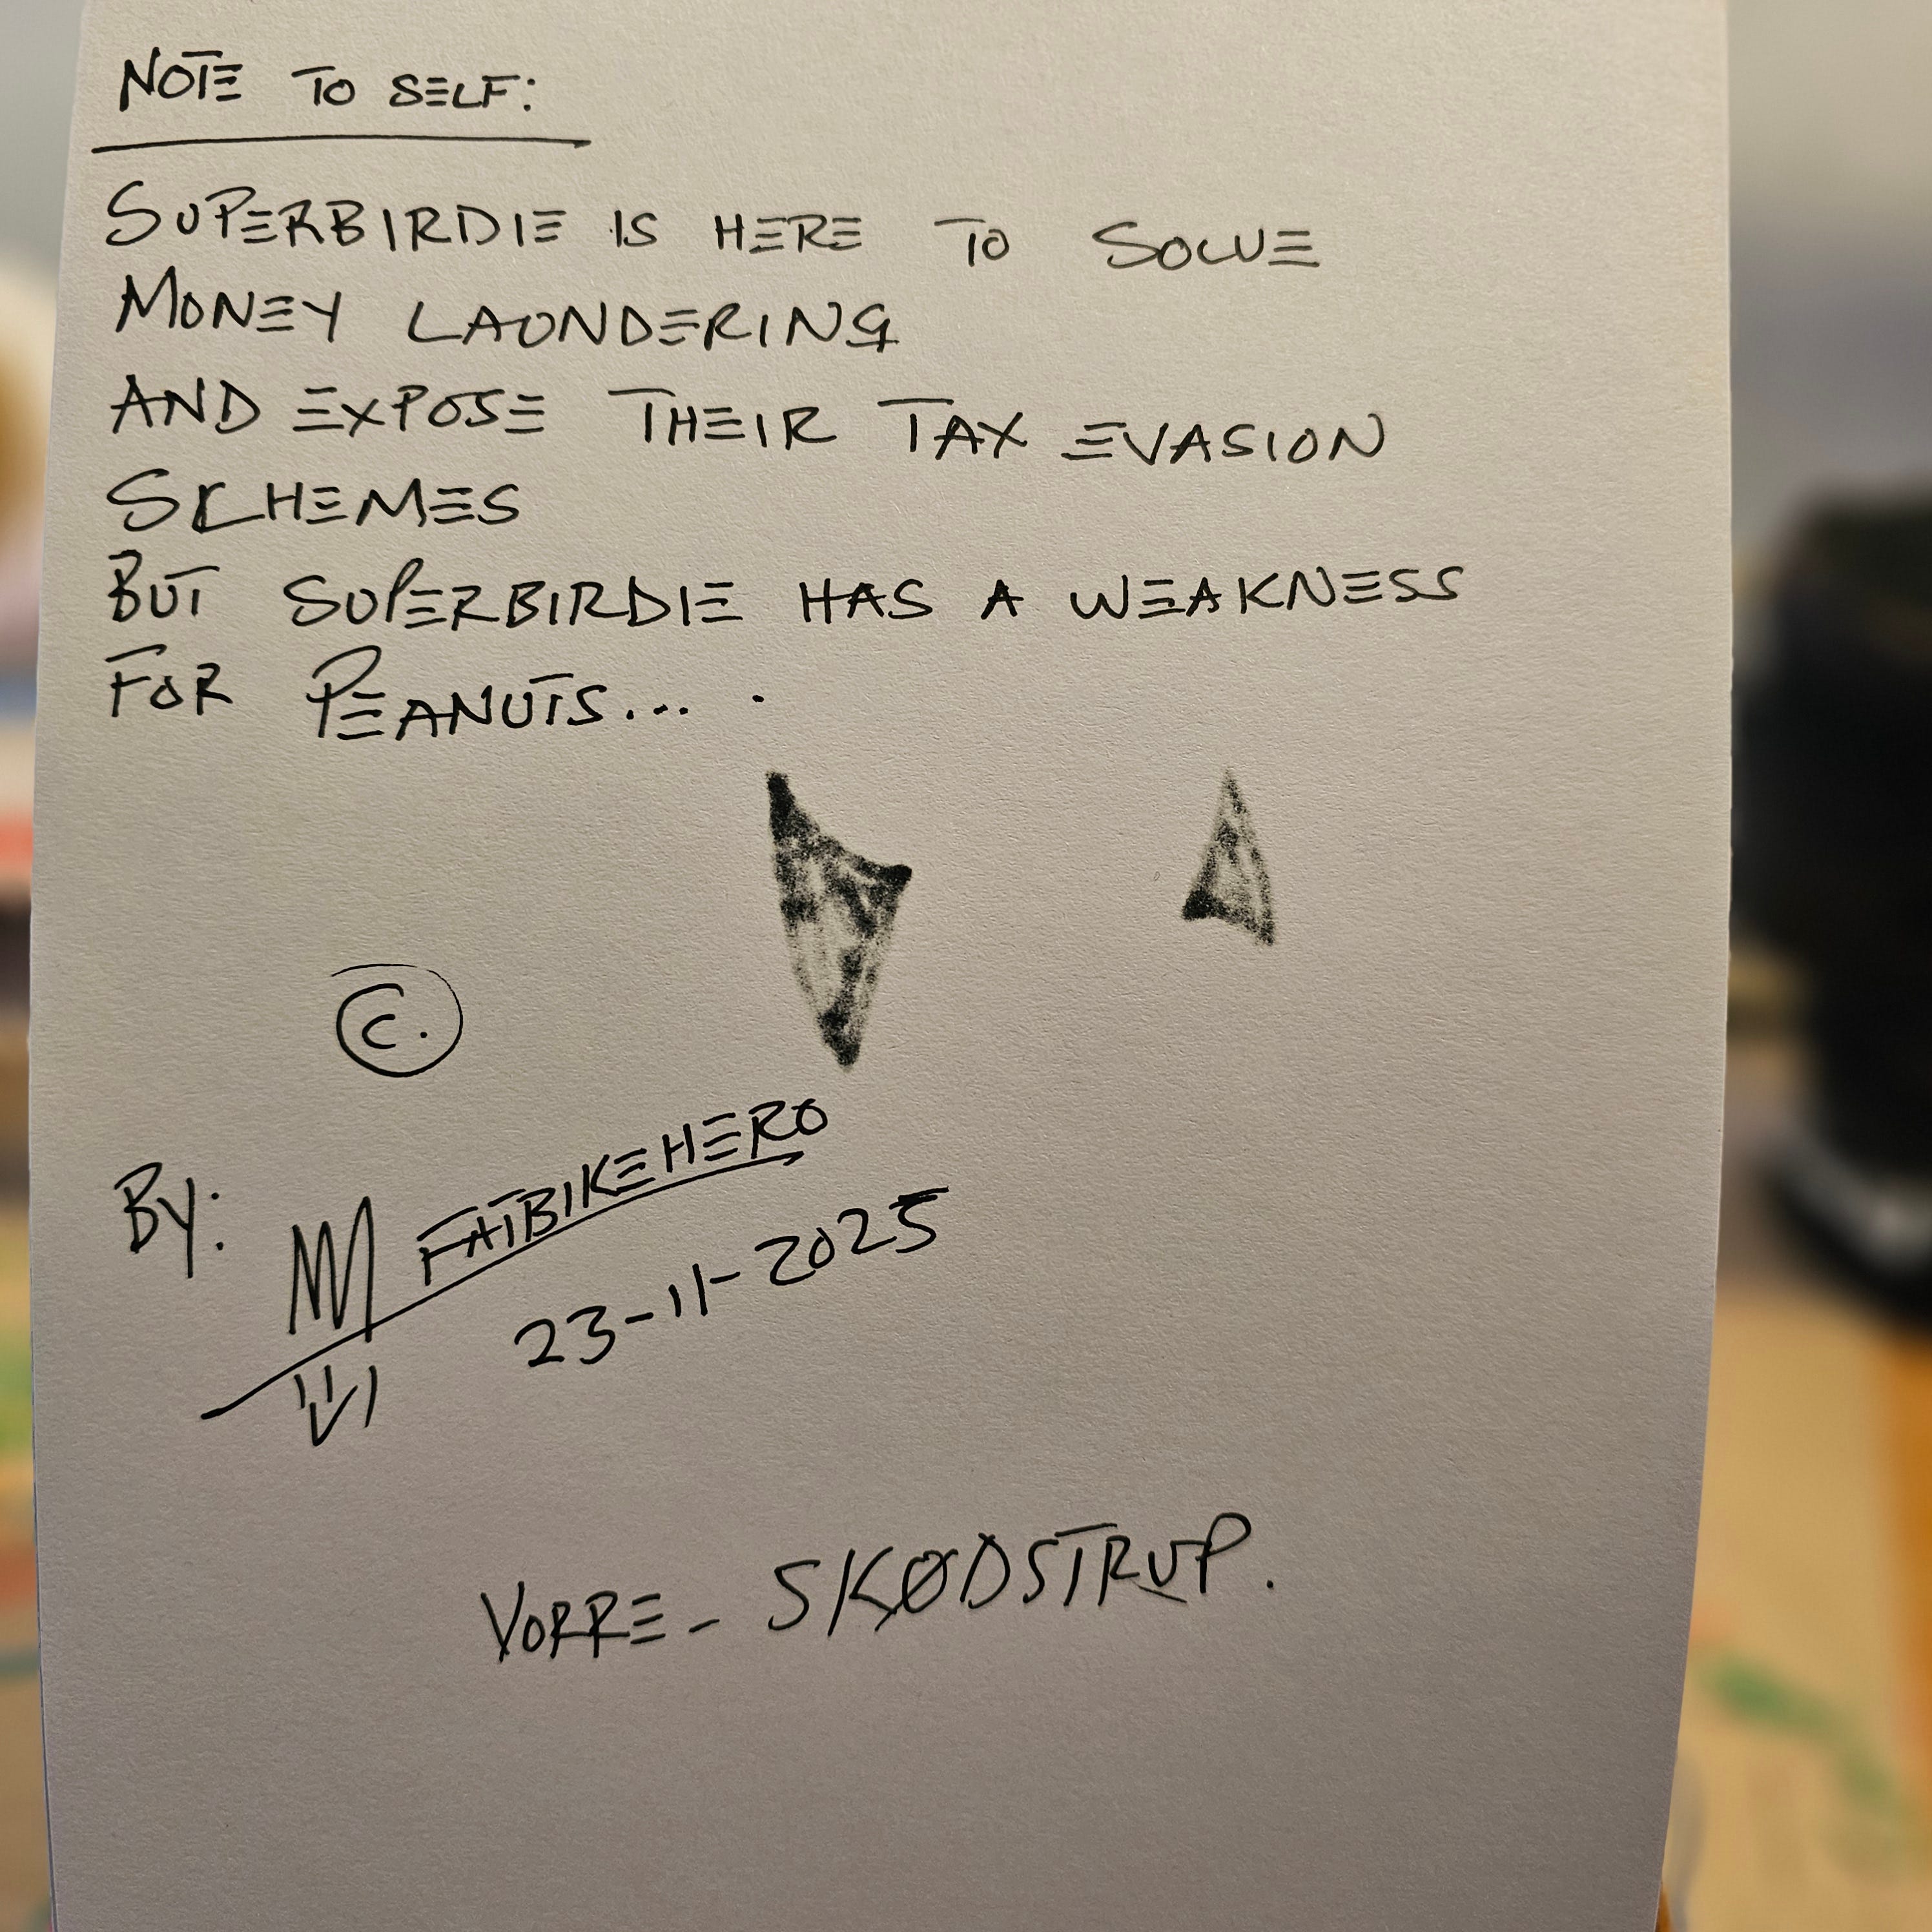 NOTE TO SELF:
SUPERBIRDIE IS HERE TO SOLVE
MONEY LAUNDERING
AND EXPOSE THEIR TAX EVASION
SCHEMES
BUT SUPERBIRDIE HAS A WEAKNESS
FOR PEANUTS... .
©.
BY: FATBIKEHERO
23-11-2025
VORRE - SKØDSTRUP.